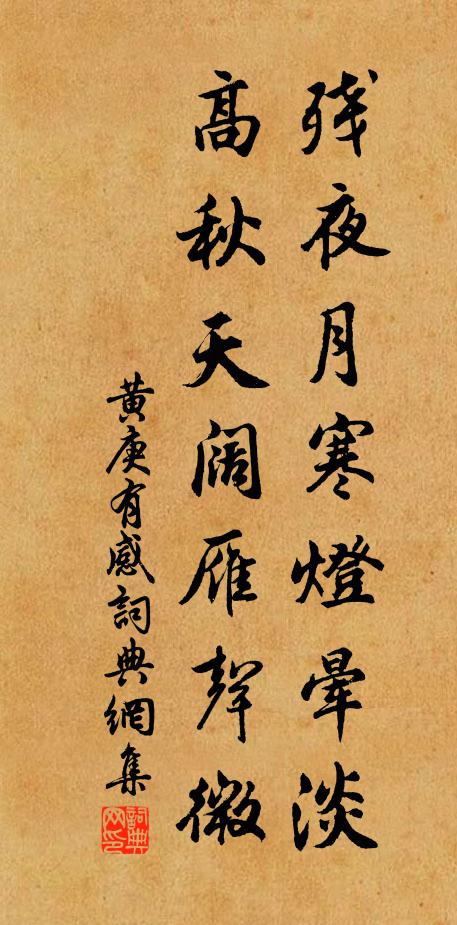 殘夜月寒燈暈淡
高秋天闊雁聲微
黃庚有感詞典網集
詞典網印